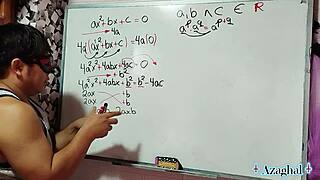 ax² + bx + c = 0
4a(ax² + bx + c) = 4a(0)
4a²x² + 4abx + 4ac = 0
+ b²
4a²x² + 4abx + b² = b² - 4ac
2ax +b
2ax +b
2axb
a, b ∧ c ∈ R
aᵖ·a^q = a^(p+q)
Azaghal